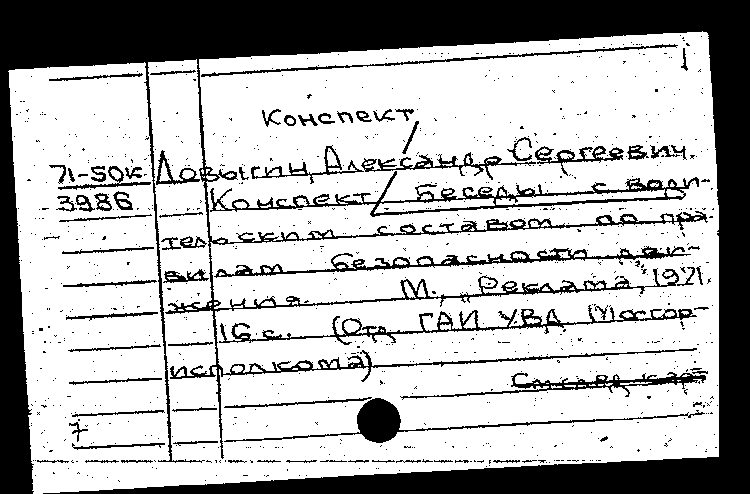 Конспект
71-50к Ловыгин, Александр Сергеевич.
3986 Конспект беседы с води-
тельским составом по пра-
вилам безопасности дви-
жения. М., "Реклама", 1971.
16 с. (Отд. ГАИ УВД Мосгор-
исполкома)
7